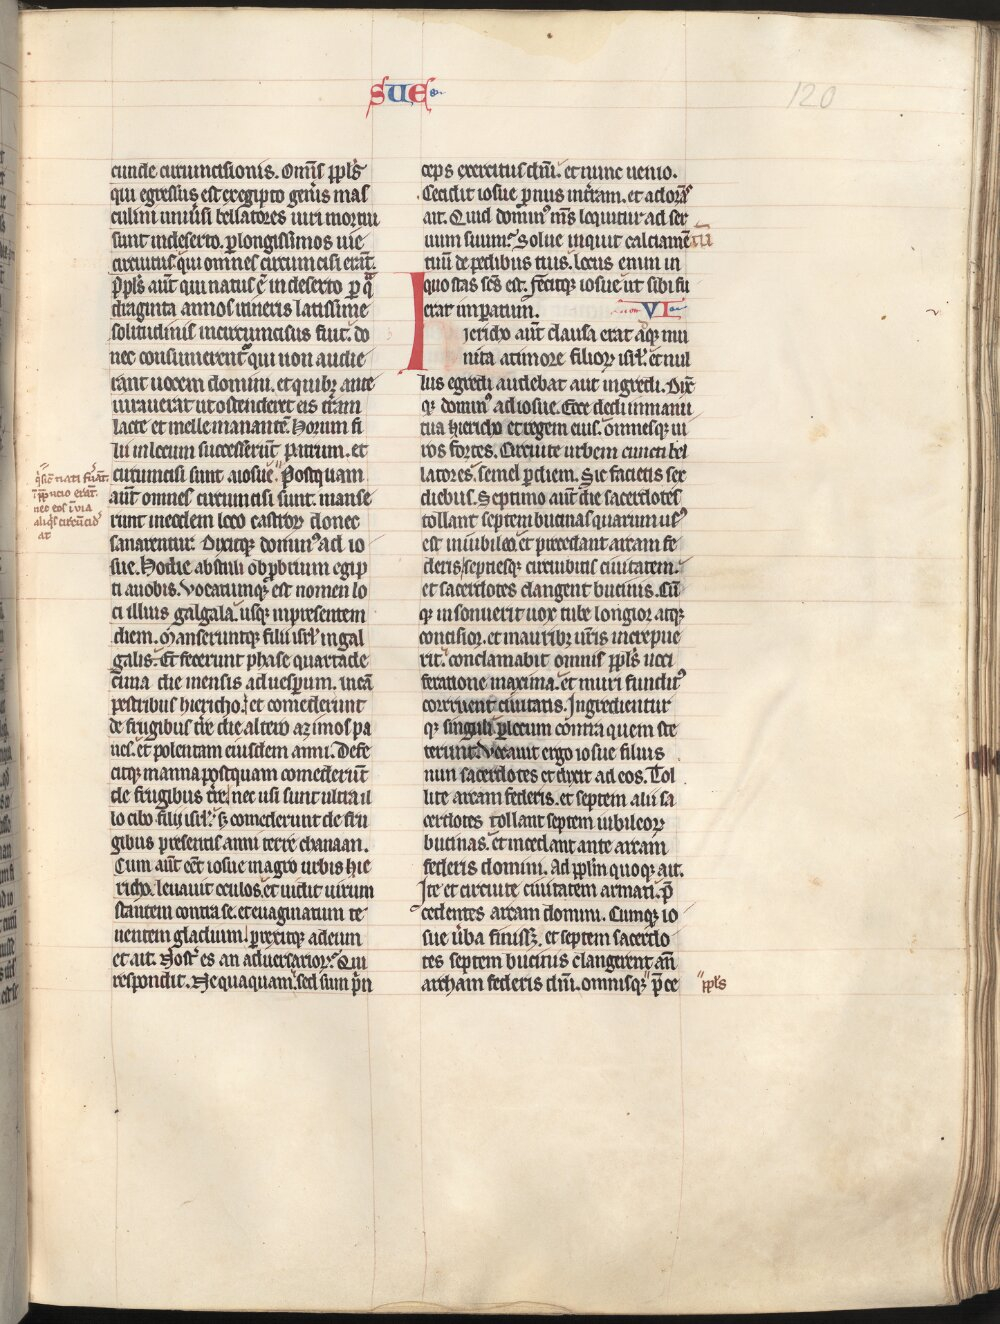 sue
120
cunde circumcisionis. Omīs ppl's
qui egressus est ex egipto gen'is mas
culini uniu'si bellatores uiri mortui
sunt in deserto. p longissimos uie
circuitus. qui omnes circumcisi erāt.
Ppl's aūt qui natus ē in deserto p q̄
draginta annos itineris latissime
solitudinis incircumcisus fuit. do
nec consumerent' qui non audie
rant uocem domini. et quibꝫ ante
iurauerat ut ostenderet eis t'ram
lacte et melle manantē. Horum fi
lii in locum successerūt patrum. et
circumcisi sunt a iosue. Postquam
aūt omnes circumcisi sunt manse
runt in eodem loco castroꝝ donec
sanarentur. Dixitqꝫ domin' ad io
sue. Hodie abstuli obprobrium egip
ti a uobis. Vocatumqꝫ est nomen lo
ci illius galgala. usqꝫ in presentem
diem. Manseruntqꝫ filii isrl' in gal
galis. Et fecerunt phase quartade
cima die mensis ad uesperum. in cā
pestribus hiericho. et comederunt
de frugibus t're die altero azimos pa
nes. et polentam eiusdem anni. Defe
citqꝫ manna postquam comederūt
de frugibus t're. nec usi sunt ultra il
lo cibo filii isrl'. s; comederunt de fru
gibus presentis anni terre chanaan.
Cum aūt eēt iosue in agro urbis hie
richo. leuauit oculos. et uidit uirum
stantem contra se. et euaginatum te
nentem gladium. perrexitqꝫ ad eum
et ait. Nost' es an aduersarioꝝ? Qui
respondit. Nequaquam. sed sum p'in
q' sic nati fu'at.
ī p'pucio erāt.
nec eos ī uia
aliq's circūcid'
at
ceps exercitus dn̄i. et nunc uenio.
Cecidit iosue pnus in t'ram. et adorās
ait. Quid domin' m's loquitur ad ser
uum suum? Solue inquit calciamētū
tuū de pedibus tuis. locus enim in
quo stas sc̄s est. fecitqꝫ iosue ut sibi fu
erat imperatum.
VI
Jericho aūt clausa erat atqꝫ mu
nita a timore filioꝝ isrl'. et nul
lus egredi audebat aut ingredi. Dix̄
qꝫ domin' ad iosue. Ecce dedi in manu
tua hiericho et regem eius. omnesqꝫ ui
ros fortes. Circuite urbem cuncti bel
latores. semel p diem. Sic facietis sex
diebus. Septimo aūt die sacerdotes
tollant septem bucinas quarum us'
est in iubileo. et precedant arcam fe
deris. septiesqꝫ circuibitis ciuitatem.
et sacerdotes clangent bucinis. Cū
qꝫ insonuerit uox tube longior atqꝫ
concisior. et in auribꝫ ur̄is increpue
rit. conclamabit omnis ppl's uoci
feratione maxima. et muri fundit'
corruent ciuitatis. Ingredientur
qꝫ singuli p locum contra quem ste
terunt. Vocauit ergo iosue filius
nun sacerdotes et dixit ad eos. Tol
lite arcam federis. et septem alii sa
cerdotes tollant septem iubileoꝝ
bucinas. et incedant ante arcam
federis domini. Ad pplm quoqꝫ ait.
Ite et circuite ciuitatem armati. p̄
cedentes arcam domini. Cumqꝫ io
sue u'ba finissꝫ. et septem sacerdo
tes septem bucinis clangerent an̄
archam federis dn̄i. omnisqꝫ p̄ce
ppl's